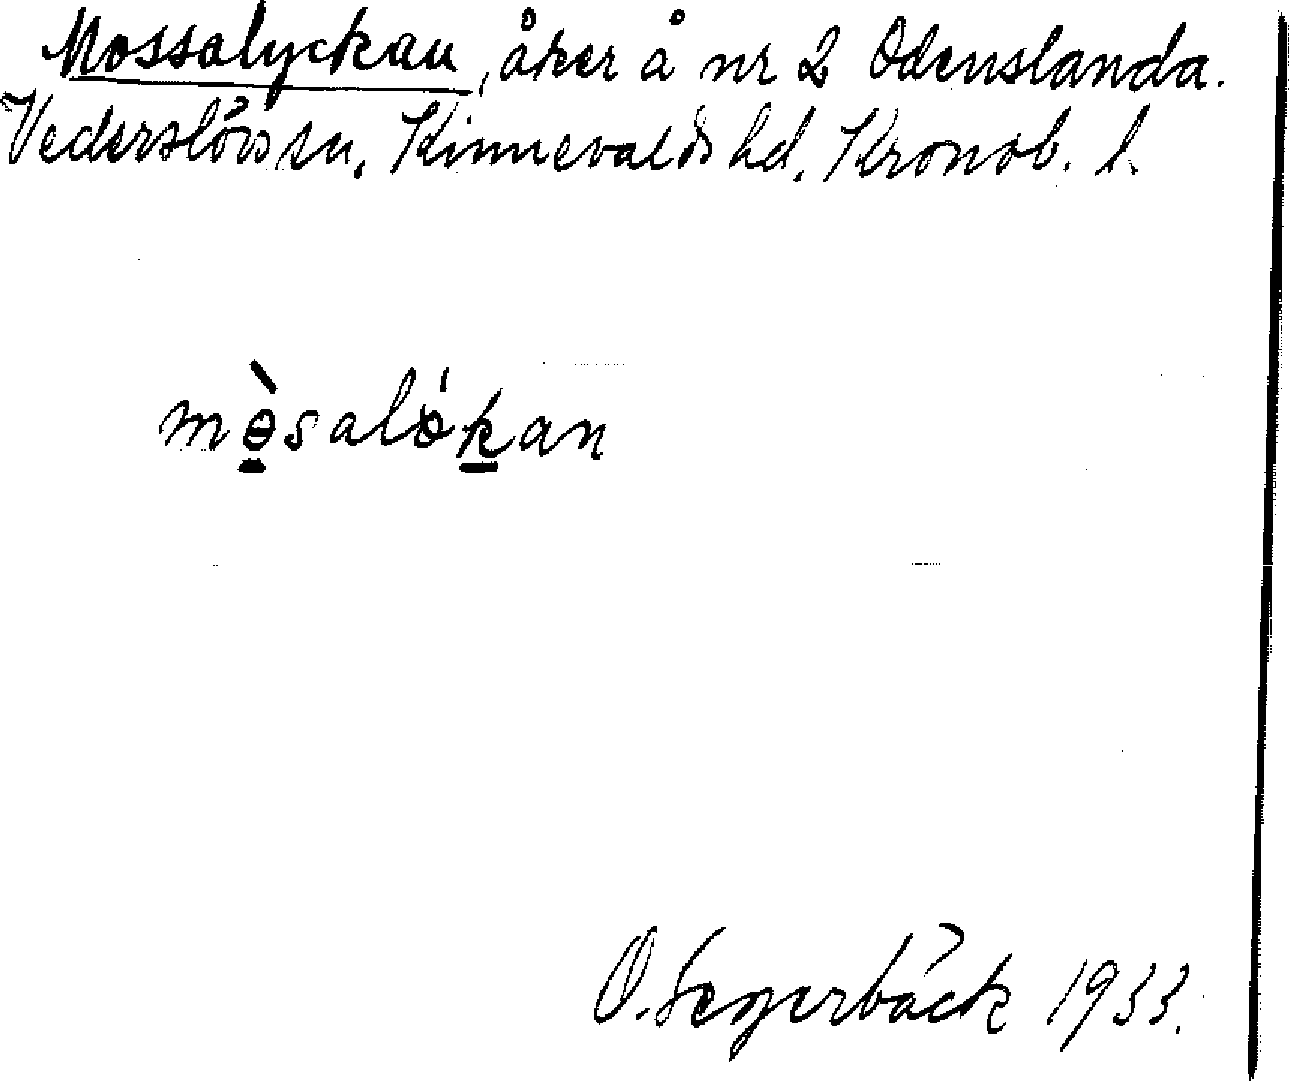 Mossalyckan, åker å nr 2 Odenslanda.
Vederslövs sn, Kinnevalds hd, Kronob. l.
mɵ̱̀salɵ́ḵan
O. Segerbäck 1933.